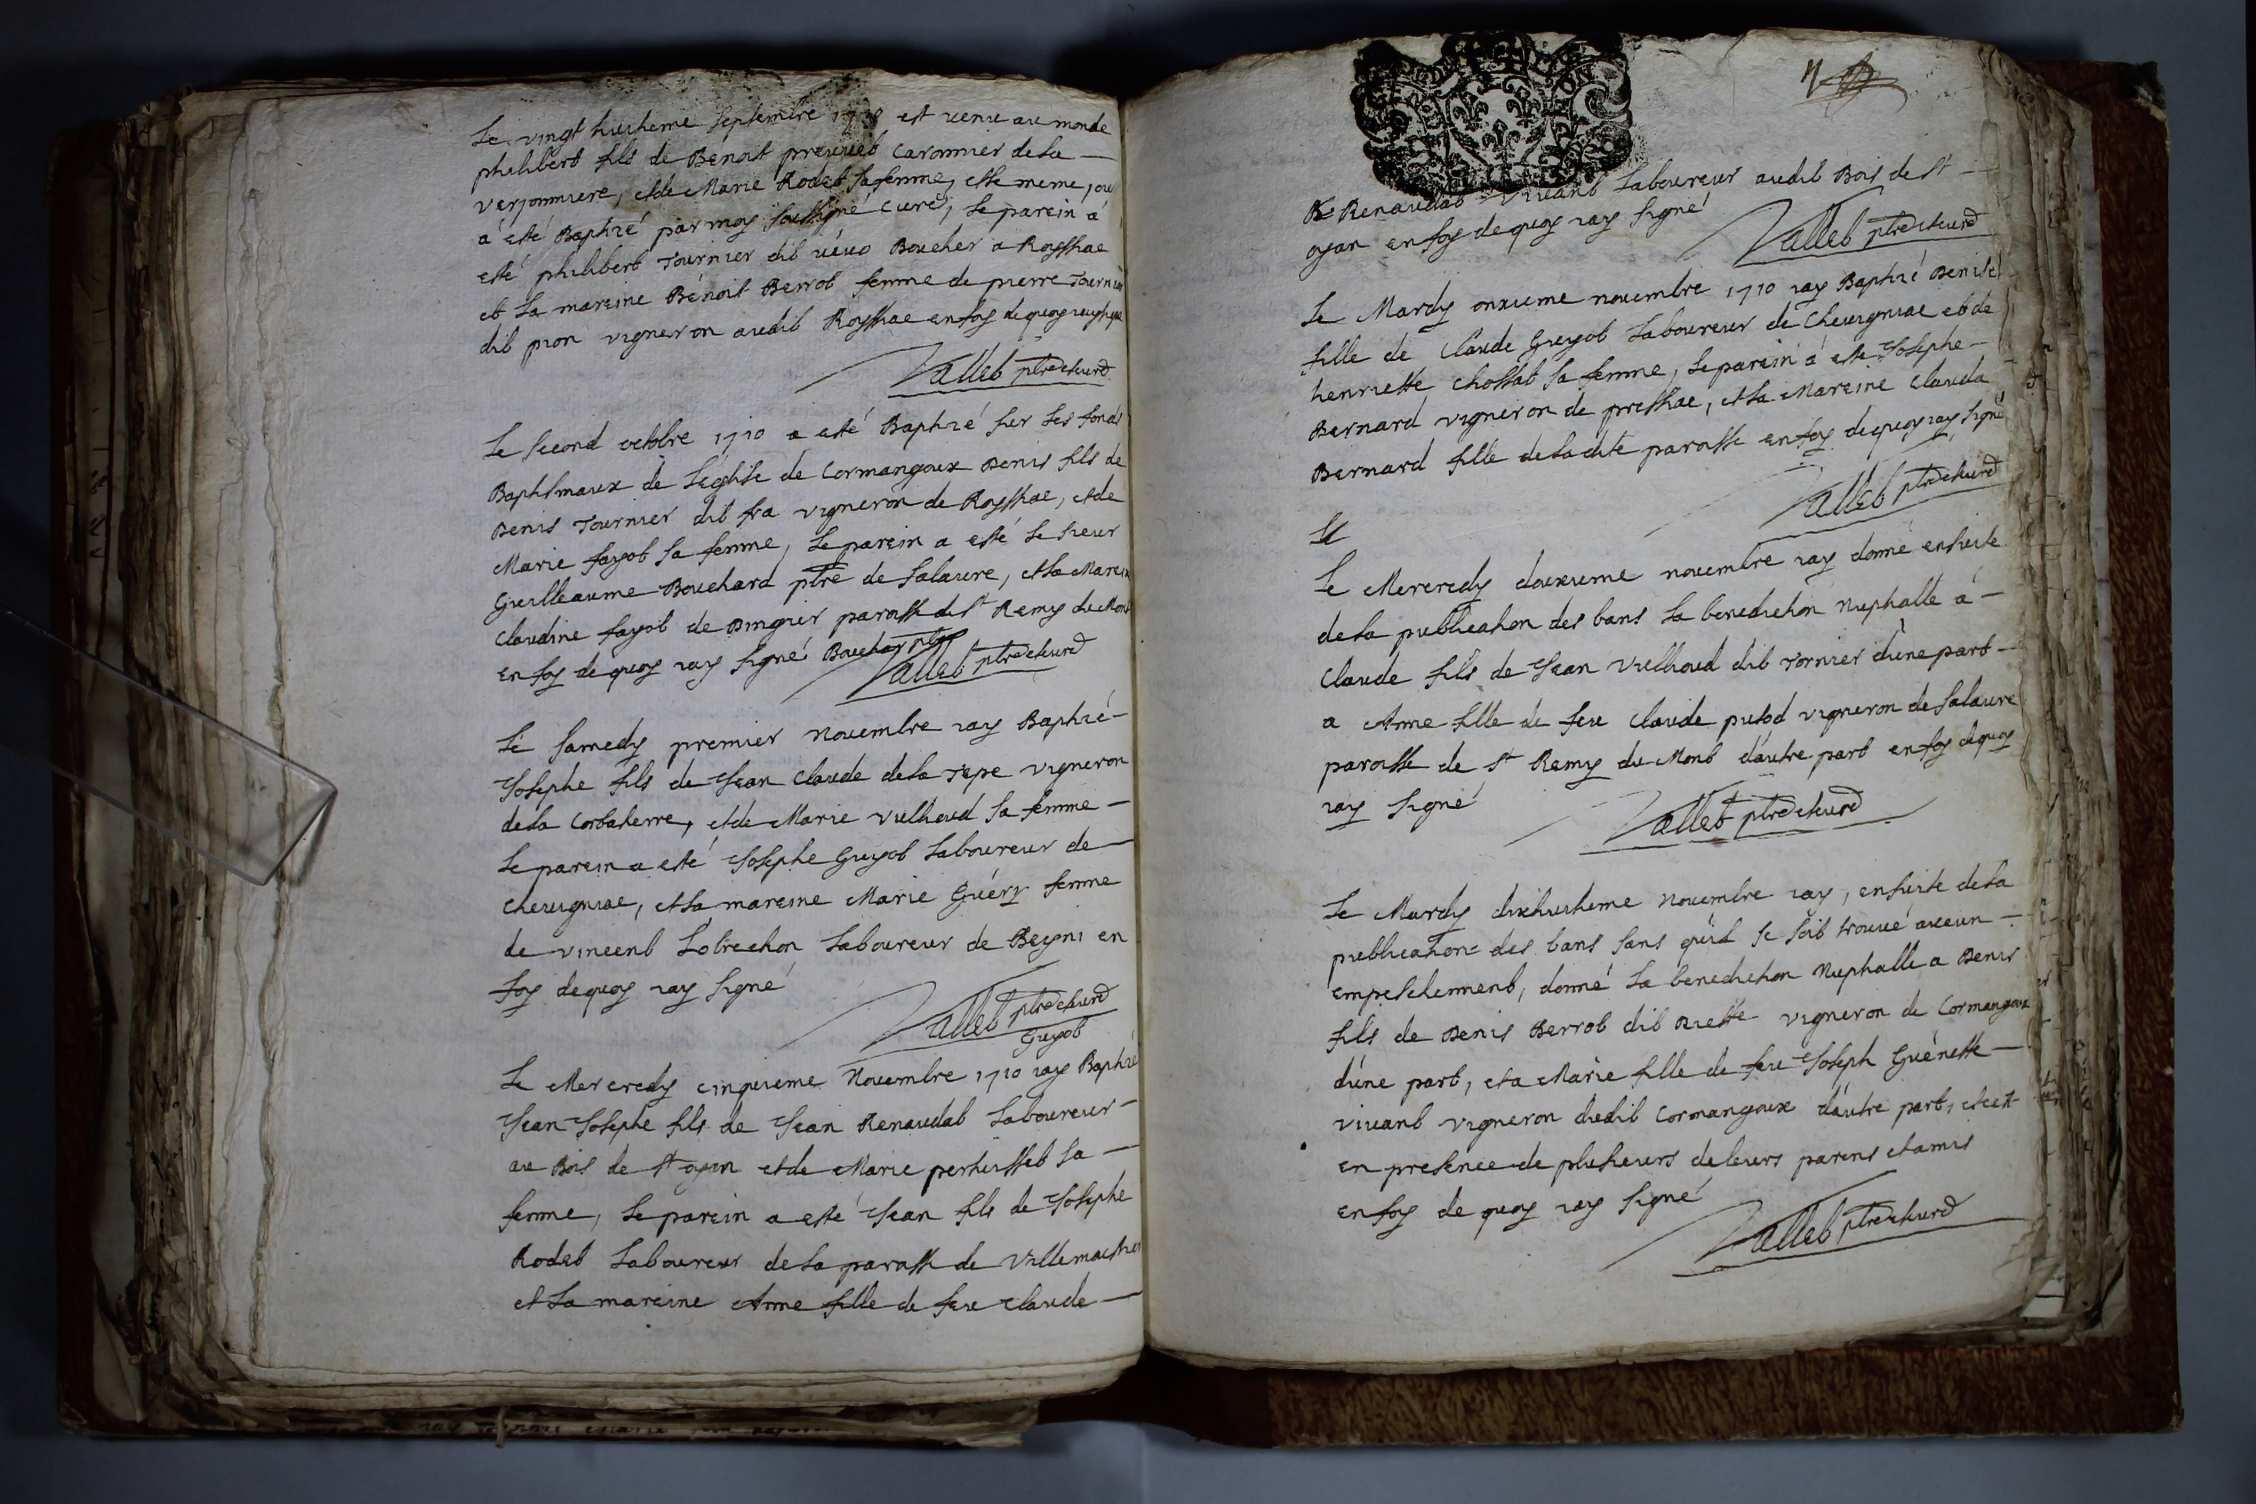 Le vingt huitieme Septembre 1710 est venu au monde
philibert fils de Benoit preuuet Caronnier de la
verjonniere, et de Marie Rodet sa femme, et le meme jour
á esté Baptizé par moy soussigné Curé, le parein á
esté philibert Tournier dit véuo Boucher a Royssiac
et la mareine Bénoit Berrot femme de pierre Tournier
dit pion vigneron audit Royssiac en foy de quoy iay signé
Vallet ptre et curé
Le second octobre 1710 a esté Baptizé sur les fonds
Baptismaux de l'église de Cormangoux Denis fils de
Denis Tournier dit fra vigneron de Royssiac, et de
Marie fayot sa femme, le parein a esté le sieur
Guilleaume Bouchard ptre de Salavre, et la Mareine
Claudine fayot de Dingier paroisse de St Remy du Mont
en foy de quoy iay signé Bouchar ptre
Vallet ptre et curé
Le Samedy premier Novembre iay Baptizé
Josephe fils de Jean Claude de la Tepe vigneron
de la Corbaterre, et de Marie vullioud sa femme
le parein a esté Josephe Guyot Laboureur de
Cheuigniac, et la mareine Marie Guéry femme
de vincent Lobrichon Laboureur de Beyni en
foy de quoy iay signé
Vallet ptre et curé
Guyot
Le Mercredy cinquieme Novembre 1710 iay Baptizé
Jean Josephe fils de Jean Renaudat Laboureur
au Bois de St oyan et de Marie perhuisset sa
femme, le parein a esté Jean fils de Josephe
Rodet Laboureur de la paroisse de Villemaistier
et la mareine Anne fille de feu Claude
Renaudat vivant Laboureur audit Bois de St
oyan en foy de quoy iay signé
Vallet ptre et curé
Le Mardy onzieme novembre 1710 iay Baptizé Denise
fille de Claude Guyot Laboureur de Cheuigniac et de
henriette Chossat sa femme, le parein á esté Josephe
Bernard vigneron de pressiac, et la Mareine Clauda
Bernard fille de ladite paroisse en foy de quoy iay signé
Vallet ptre et curé
Le
Le Mercredy douzieme novembre iay donné ensuite
de la publication des bans la benediction Nuptialle á
Claude fils de Jean Vullioud dit Tornier d'une part
a Anne fille de feu Claude putod vigneron de Salavre
paroisse de St Remy du Mont d'autre part en foy de quoy
iay signé
Vallet ptre et curé
Le Mardy dixhuitieme Novembre iay, ensuite de la
publication des bans sans qu'il se soit trouvé aucun
empeschement, donné la benediction Nuptialle a Denis
fils de Denis Berrot dit Riette vigneron de Cormangoux
d'une part, et a Marie fille de feu Joseph Guénette
vivant vigneron dudit Cormangoux d'autre part, et cest
en presence de plusieurs de leurs parens et amis
en foy de quoy iay signé
Vallet ptre et curé